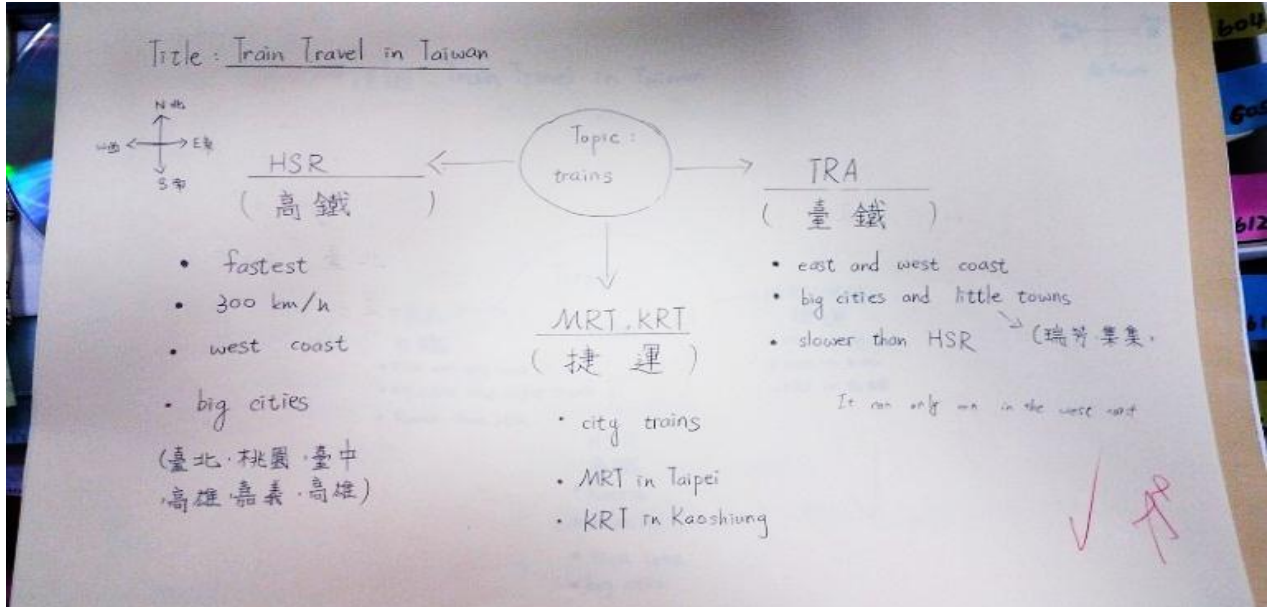 Title : Train Travel in Taiwan
N 北
W 西
E 東
S 南
Topic :
trains
HSR
( 高 鐵 )
• fastest
• 300 km/h
• west coast
• big cities
(臺北·桃園·臺中
·高雄·嘉義·高雄)
MRT.KRT
( 捷 運 )
• city trains
• MRT in Taipei
• KRT in Kaoshiung
TRA
( 臺 鐵 )
• east and west coast
• big cities and little towns
• slower than HSR
(瑞芳集集,
It can only run in the west coast
604
605
612